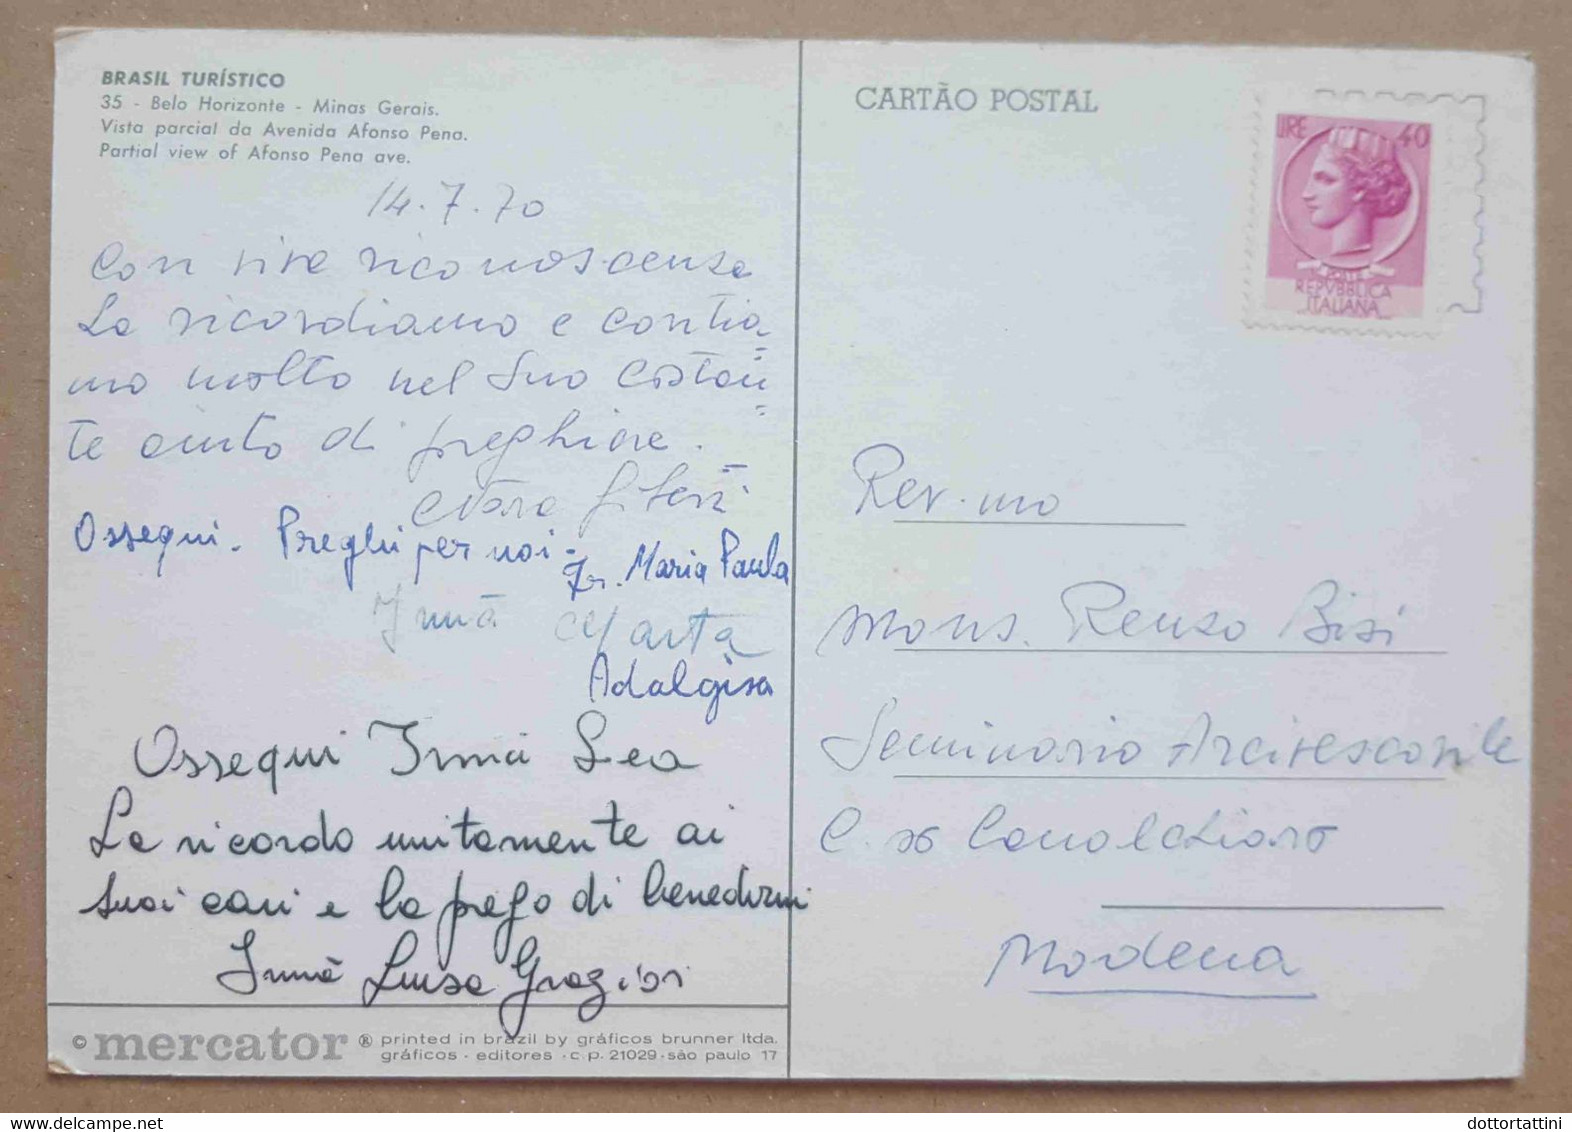 BRASIL TURÍSTICO
35 - Belo Horizonte - Minas Gerais.
Vista parcial da Avenida Afonso Pena.
Partial view of Afonso Pena ave.
14.7.70
Con viva riconoscenza
La ricordiamo e contia=
mo molto nel Suo costan=
te aiuto di preghiere.
Ossequi. Preghi per noi.
Maria Paula
Irmã Marta
Adalgisa
Ossequi Irmã Lea
La ricordo unitamente ai
suoi cari e la prego di benedirmi
Irmã Luisa Graziosi
© mercator ® printed in brazil by gráficos brunner ltda.
gráficos - editores - c.p. 21029 - são paulo 17
CARTÃO POSTAL
LIRE 40
POSTE
REPVBBLICA
ITALIANA
Rev.mo
Mons. Renzo Bisi
Seminario Arcivescovile
C.so Canalchiaro
Modena
dottortattini